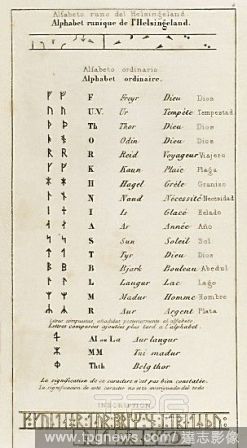 Alfabeto runo del Helsingeland.
Alphabet runique de l'Helsingeland.
Alfabeto ordinario
Alphabet ordinaire.
ᚠ ᚠ F Freyr Dieu Dios
ᚢ ᚢ U.V. Ur Tempête Tempestad
ᚦ ᚦ Th Thor Dieu Dios
O Odin Dieu Dios
ᚱ ᚱ R Reid Voyageur Viajero
ᚴ ᚴ K Kaun Plaie Plaga
ᚼ ᚼ H Hagel Grêle Granizo
ᚾ ᚾ N Naud Nécessité Necesidad
ᛁ I Is Glacé Helado
A Ar Année Año
S Sun Soleil Sol
ᛏ T Tyr Dieu Dios
ᛒ ᛒ B Bjark Bouleau Abedul
ᛚ ᛚ L Laugur Lac Lago
ᛘ ᛘ M Madur Homme Hombre
R Aur Argent Plata
Letras compuestas, añadidas posteriormente al alfabeto
Lettres composées ajoutées plus tard à l'alphabet.
Al ou La Aur laugur
MM Tui madur
Thth Belgthor
La signification de ce caractère n'est pas bien constatée.
La significación de este caracter no está
INSCRIPTION
www.tpgnews.com/達志影像